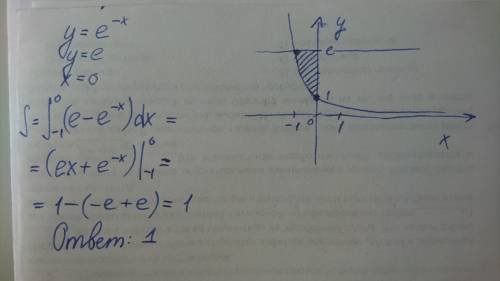 y = e^{-x}
y = e
x = 0
S = ∫_{-1}^{0} (e - e^{-x}) dx =
= (ex + e^{-x}) |_{-1}^{0} =
= 1 - (-e + e) = 1
Ответ: 1
y
e
1
-1 0 1
x